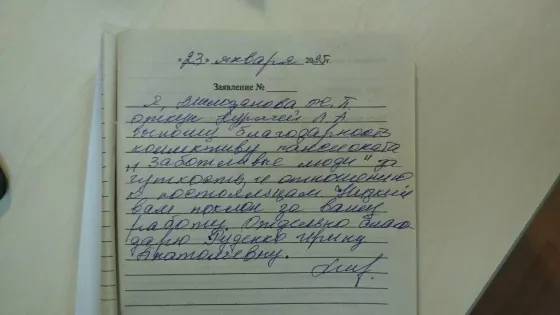 «23» января 2025г.
Заявление №
Я, Милоданова Т. П.
опекун
выношу благодарность
коллективу пансионата
"Заботливые люди" за
чуткость и отношение
к постояльцам Низкий
вам поклон за вашу
работу. Отдельно благо-
дарю Руденко Ирину
Анатольевну.